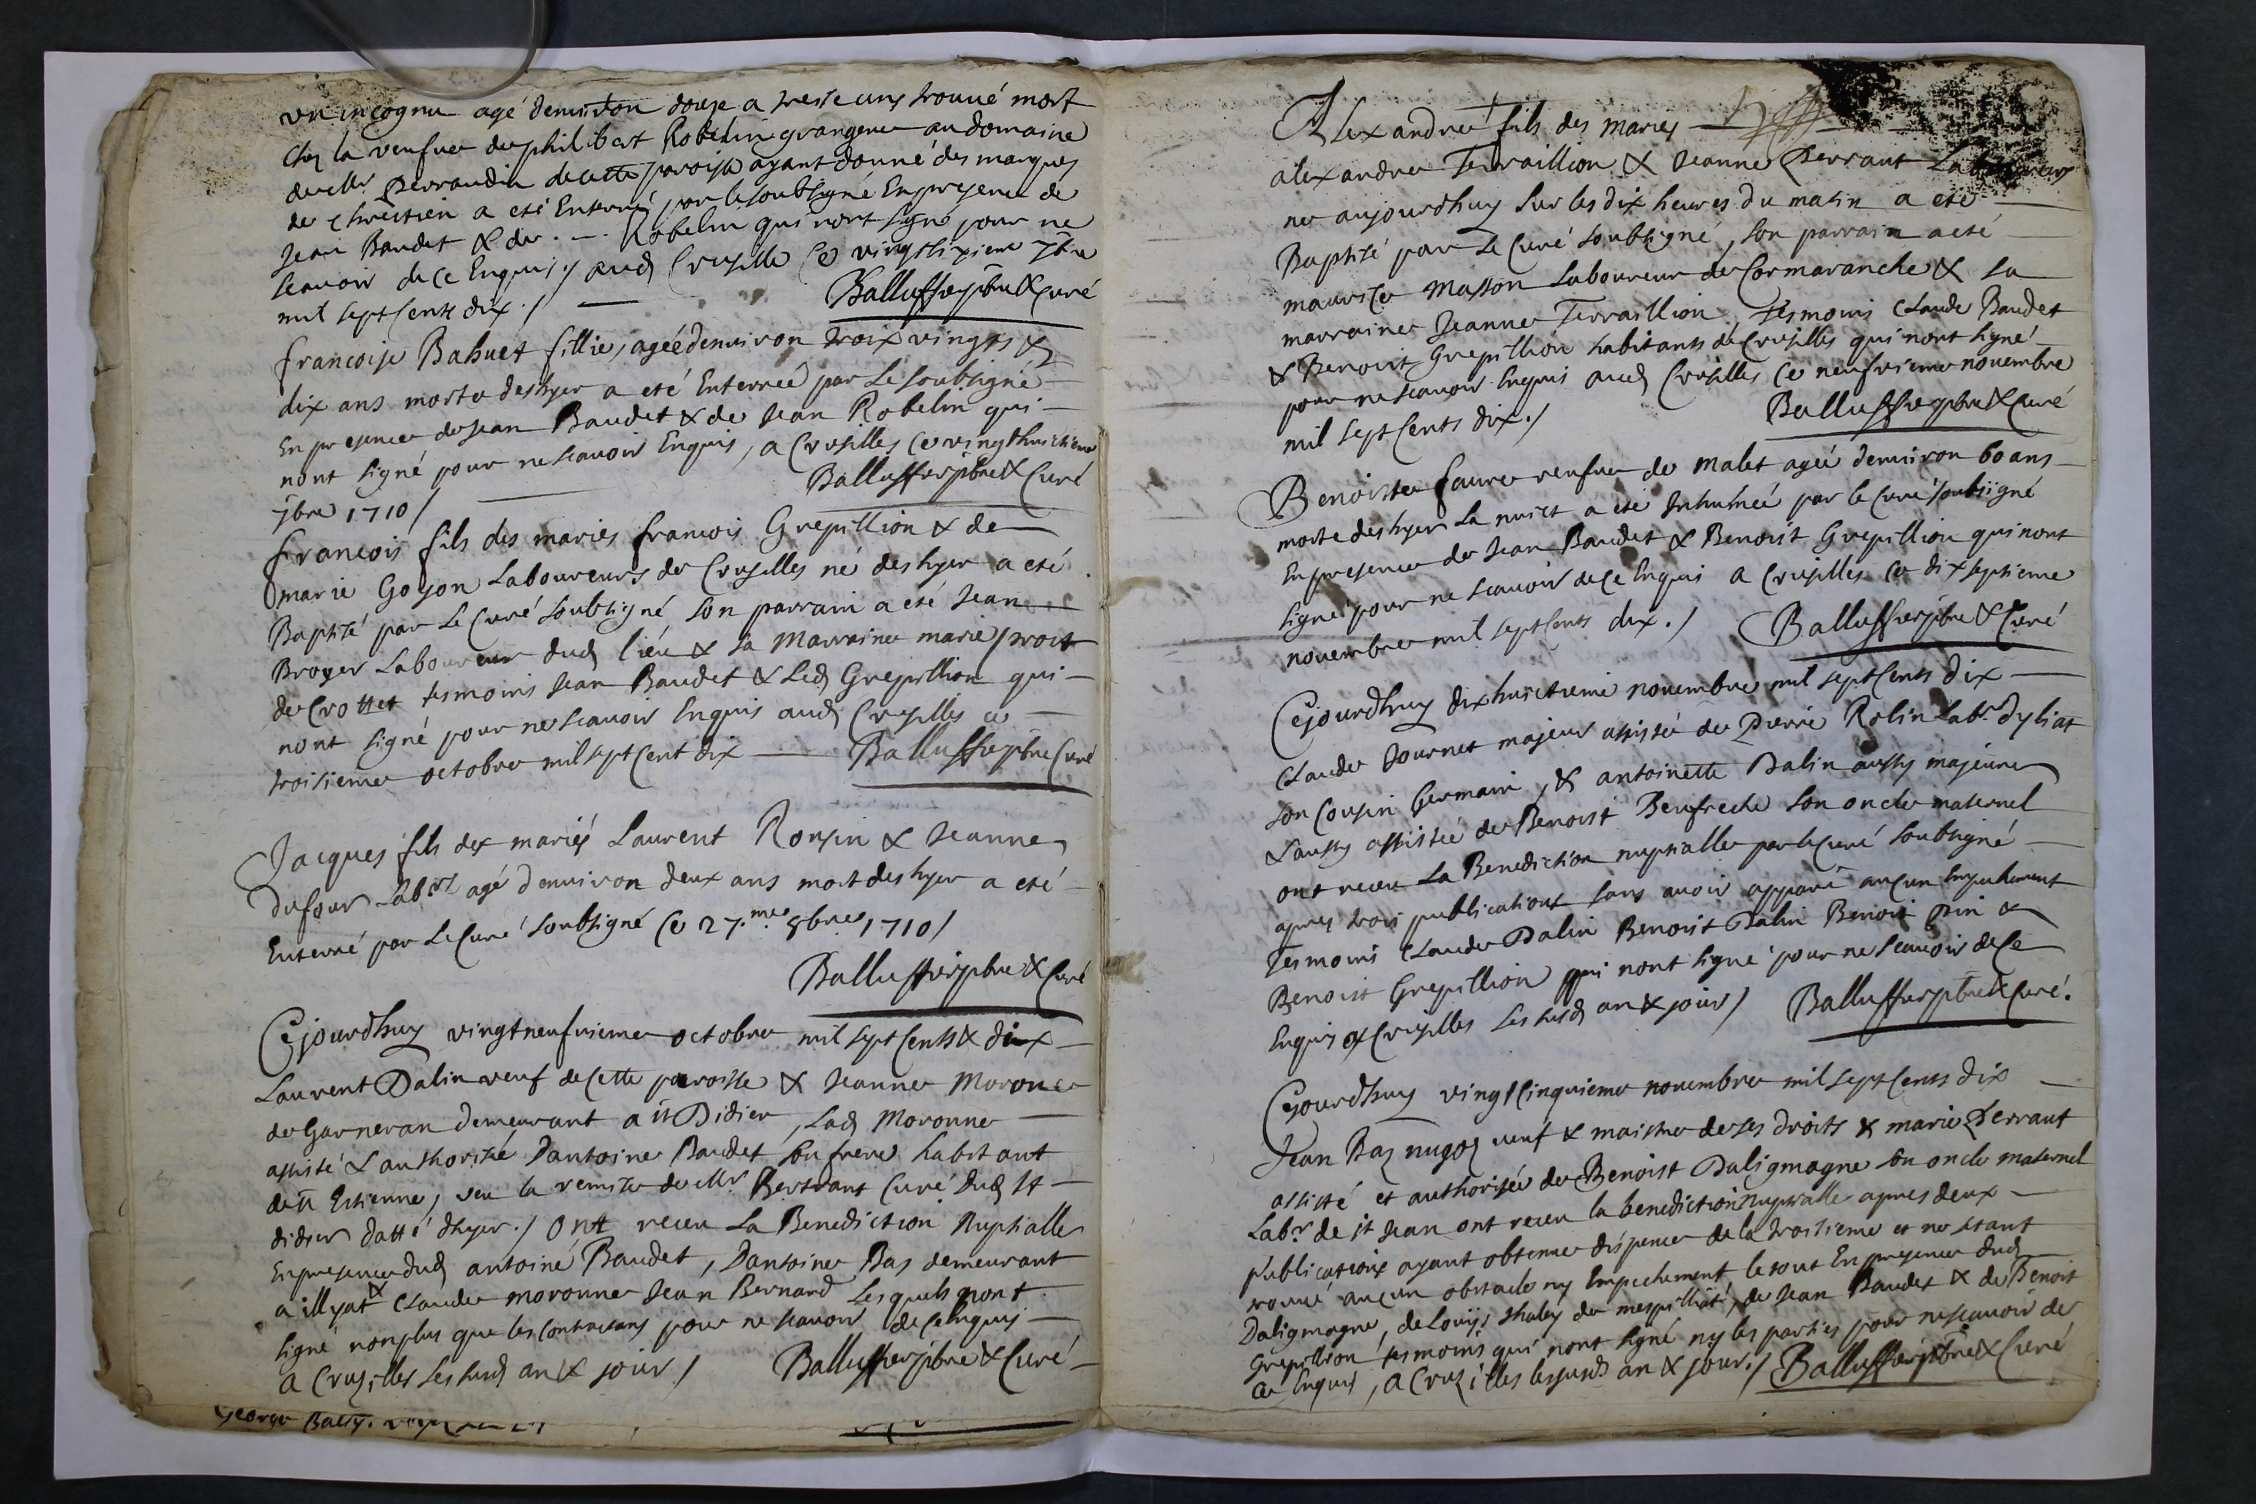 un incognu agé denviron douze a treise ans trouvé mort
chez la veufue de philibert Robelin granger au domaine
de Mr. Perraudin de cette paroisse ayant donné des marques
de chrestien a eté Enterré par le soubsigné En presence de
Jean Baudet & de . — . Robelin qui n'ont signé pour ne
scavoir de ce Enquis ./ aud Crusille Ce vingtsixieme 7bre
mil sept Cents dix ./ Balluffierptre & Curé
francoise Bahuet fillie, agée denviron troix vingts &
dix ans morte deshyer a eté Enterrée par Le soubsigné
En presence de Jean Baudet & de Jean Robelin qui
nont signé pour ne scavoir Enquis, a Crusilles Ce vingthuictieme
7bre 1710 / Balluffierptre & Curé
francois fils des mariés francois Grepillion & de
marie Goyon Laboureurs de Crusilles né deshyer a eté
Baptisé par Le Curé soubsigné, son parrain a eté Jean
Broyer Laboureur dud lieu & sa Marraine marie prost
de Crottet tesmoins Jean Baudet & Led Grepillion qui
nont signé pour ne scavoir Enquis aud Crusilles ce
troisieme octobre mil sept Cent dix — Balluffierptre Curé
Jacques fils des mariés Laurent Ronsin & Jeanne
Dufour Labrs agé denviron deux ans mort deshyer a eté
Enterré par Le Curé soubsigné Ce 27.me 8bre 1710 /
Balluffierptre & Curé
Cejourdhuy vingtneufvieme octobre mil sept Cents & dix
Laurent Dalin veuf de Cette paroisse & Jeanne Moronne
de Garneran demeurant a st Didier, Lad Moronne
assisté & authorisé Dantoine Baudet son frere habitant
de st Estienne, veu la remise de Mr. Bertrant Curé dud st
didier datté dhyer ./ Ont receu La Benediction Nuptialle
En presence dud antoine Baudet, Dantoine Bas demeurant
a illyat & Claude moronne Jean Bernard Lesquels nont
signé nonplus que les contractans pour ne scavoir de ce Enquis
a Crusilles Les susd an & jour / Balluffierptre & Curé
George
Alexandre fils des mariés
alexandre Terraillion & Jeanne Perraut Laboureurs
né aujourdhuy sur les dix heures du matin a eté
Baptisé par Le Curé soubsigné, son parrain a eté
maurice Masson Laboureur de Cormaranche & sa
marraine Jeanne Terraillion, tesmoins Claude Baudet
& Benoist Grepillion habitants de Crusilles qui nont signé
pour ne scavoir Enquis aud Crusilles Ce neufvieme novembre
mil sept Cents dix ./ Balluffierptre & Curé
Benoiste faure veufue de Malet agée denviron 60 ans
morte deshyer La nuict a eté Inhumée par le Curé soubsigné
En presence de Jean Baudet & Benoist Grepillion qui nont
signé pour ne scavoir de ce Enquis a Crusilles Ce dix septieme
novembre mil sept Cents dix ./ Balluffierptre & Curé
Cejourdhuy dixhuictieme novembre mil sept Cents dix
Claude Tournet majeur assisté de Pierre Rolin Labr. Dyliat
son Cousin Germain, & antoinette Dalin aussy majeure
& aussy assistée de Benoist Beufreche son oncle maternel
ont receu La Benediction nuptialle par le Curé soubsigné
apres trois publications sans avoir apparu aucun Empechement
Tesmoins Claude Dalin Benoist Dalin Benoit Pin &
Benoist Grepillion qui nont signé pour ne scavoir de ce
Enquis a Crusilles Les susd an & jour / Balluffierptre & Curé.
Cejourdhuy vingtcinquieme novembre mil sept Cents dix
Jean Bas veuf & maistre de ses droits & marie Perraut
assisté et authorisée de Benoist Daligmagne son oncle maternel
Labr. de st Jean ont receu la benediction nuptialle apres deux
publications ayant obtenu dispence de la troisieme et ne stant
trouvé aucun obstacle ny Empechement, le tout En presence dud
Daligmagne, de Louijs de mespilliat, de Jean Baudet & de Benoit
Grepillion tesmoins qui nont signé ny les parties pour ne scavoir de
ce Enquis, a Crusilles les susd an & jour ./ Balluffierptre & Curé